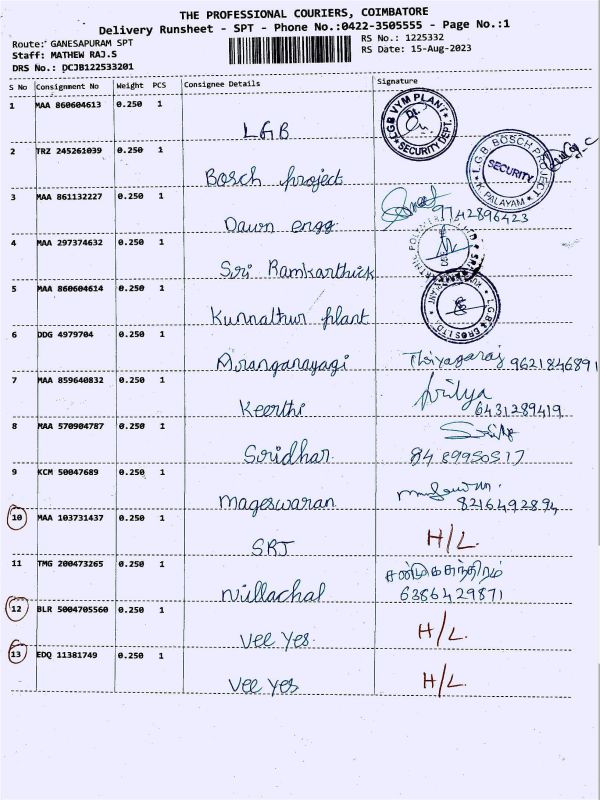 THE PROFESSIONAL COURIERS, COIMBATORE
Delivery Runsheet - SPT - Phone No.:0422-3505555 - Page No.:1
Route: GANESAPURAM SPT
RS No.: 1225332
Staff: MATHEW RAJ.S
RS Date: 15-Aug-2023
DRS No.: DCJB122533201
S No Consignment No Weight PCS Consignee Details Signature
1 MAA 860604613 0.250 1 LGB L.G.B VYM PLANT SECURITY DEPT.
2 TRZ 245261039 0.250 1 Bosch project L.G.B BOSCH PROJECT SECURITY K. PALAYAM
3 MAA 861132227 0.250 1 Dawn engg 9742896423
4 MAA 297374632 0.250 1 Sri Ramkarthick
5 MAA 860604614 0.250 1 Kunnathur plant
6 DDG 4979704 0.250 1 Aranganayagi Thiyagaraj 9621846891
7 MAA 859640832 0.250 1 Keerthi 6431289419
8 MAA 570904787 0.250 1 Sridhar 8489950517
9 KCM 50047689 0.250 1 Mageswaran 8216492894
10 MAA 103731437 0.250 1 SRJ H/L.
11 TMG 200473265 0.250 1 Nullachal 6386429871
12 BLR 5004705560 0.250 1 Vee Yes. H/L.
13 EDQ 11381749 0.250 1 Vee Yes H/L.